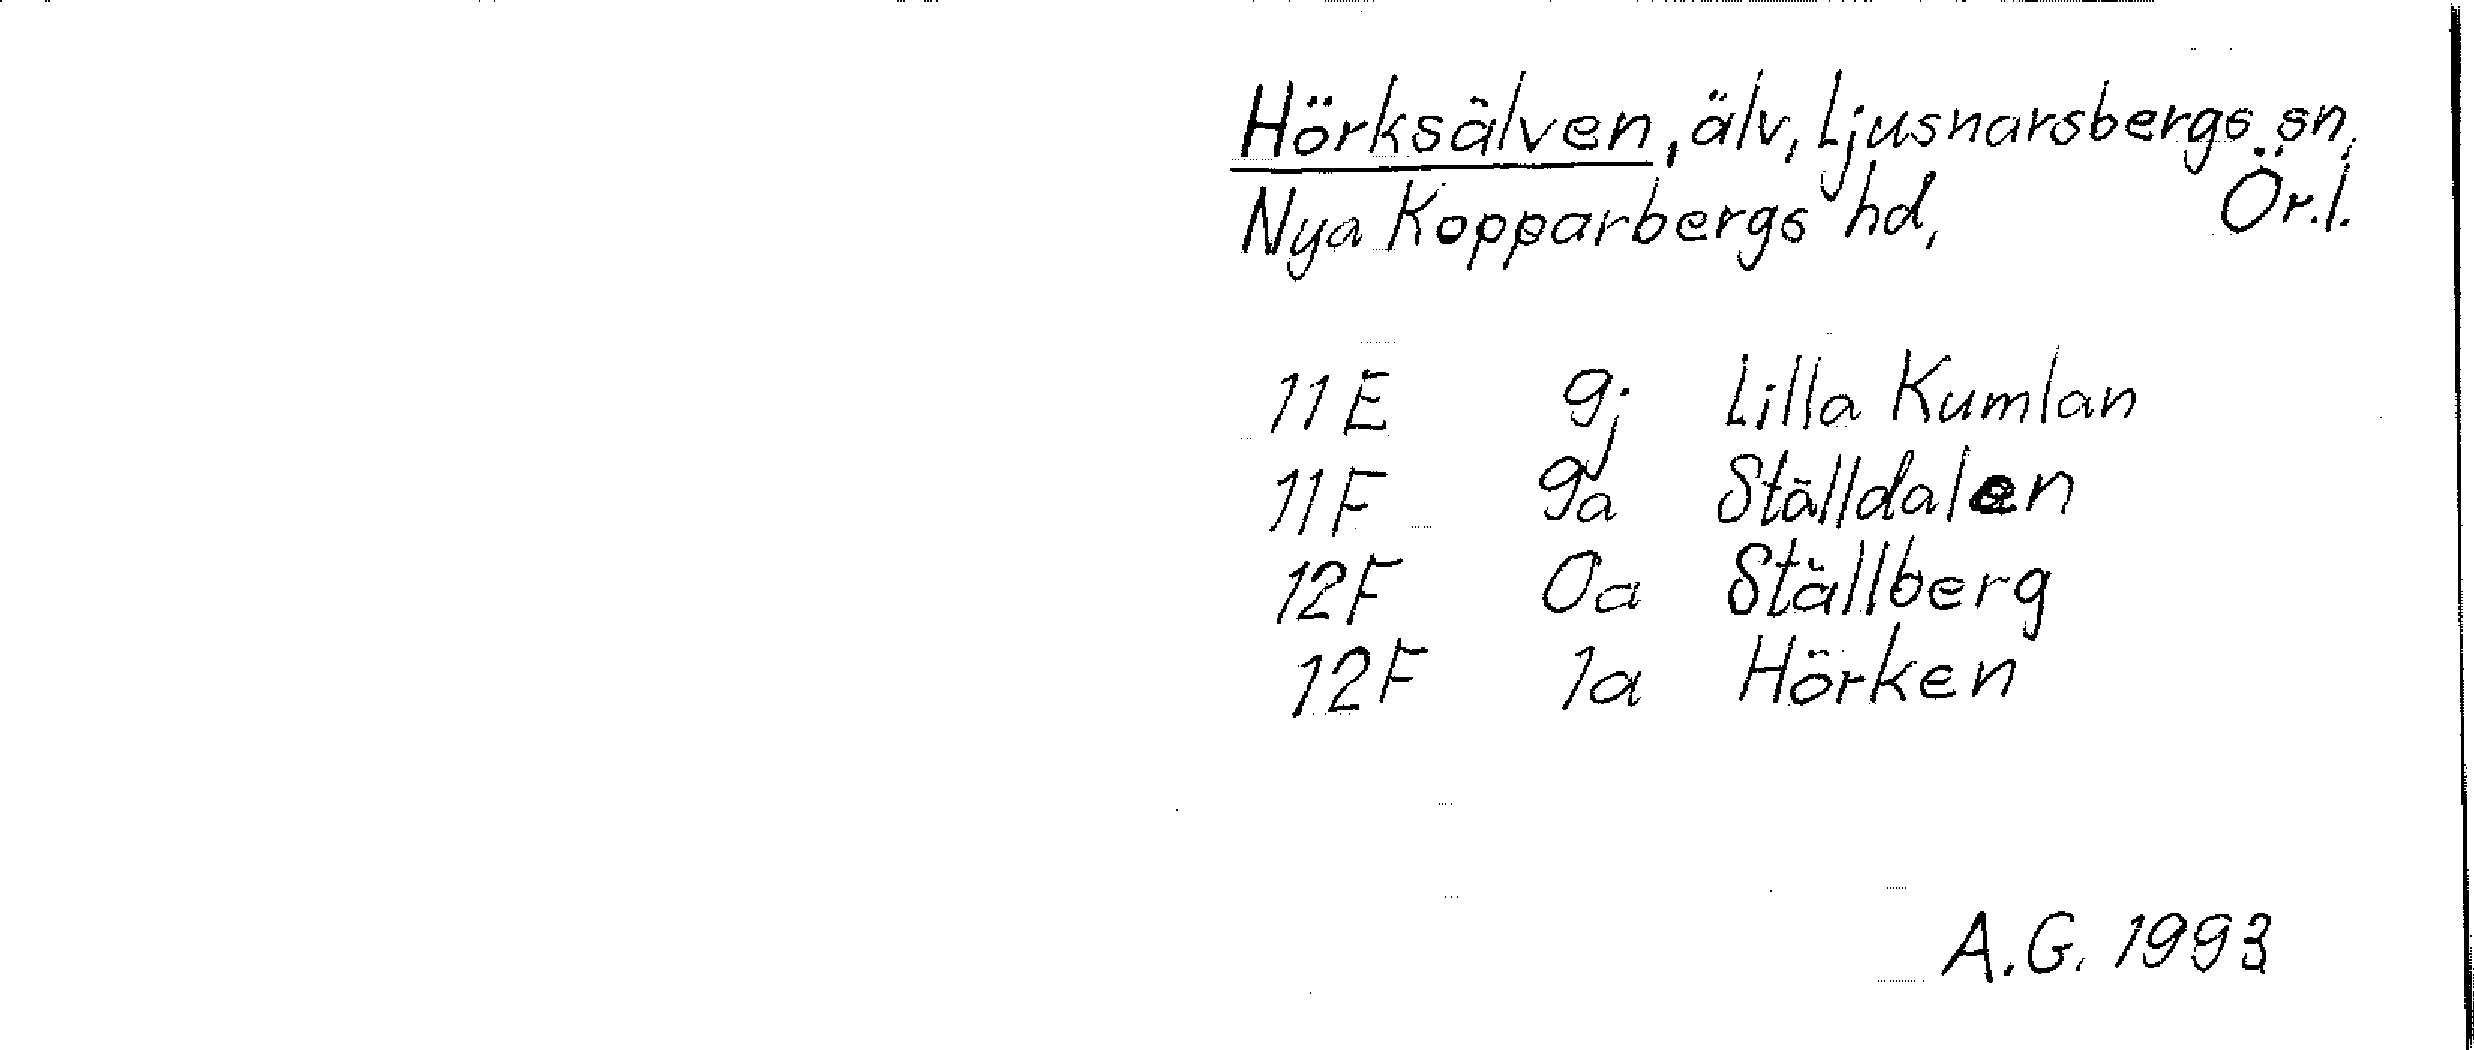 Hörksälven, älv, Ljusnarsbergs sn,
Nya Kopparbergs hd, Ör.l.
11E 9j Lilla Kumlan
11F 9a Ställdalen
12F 0a Ställberg
12F 1a Hörken
A.G. 1993